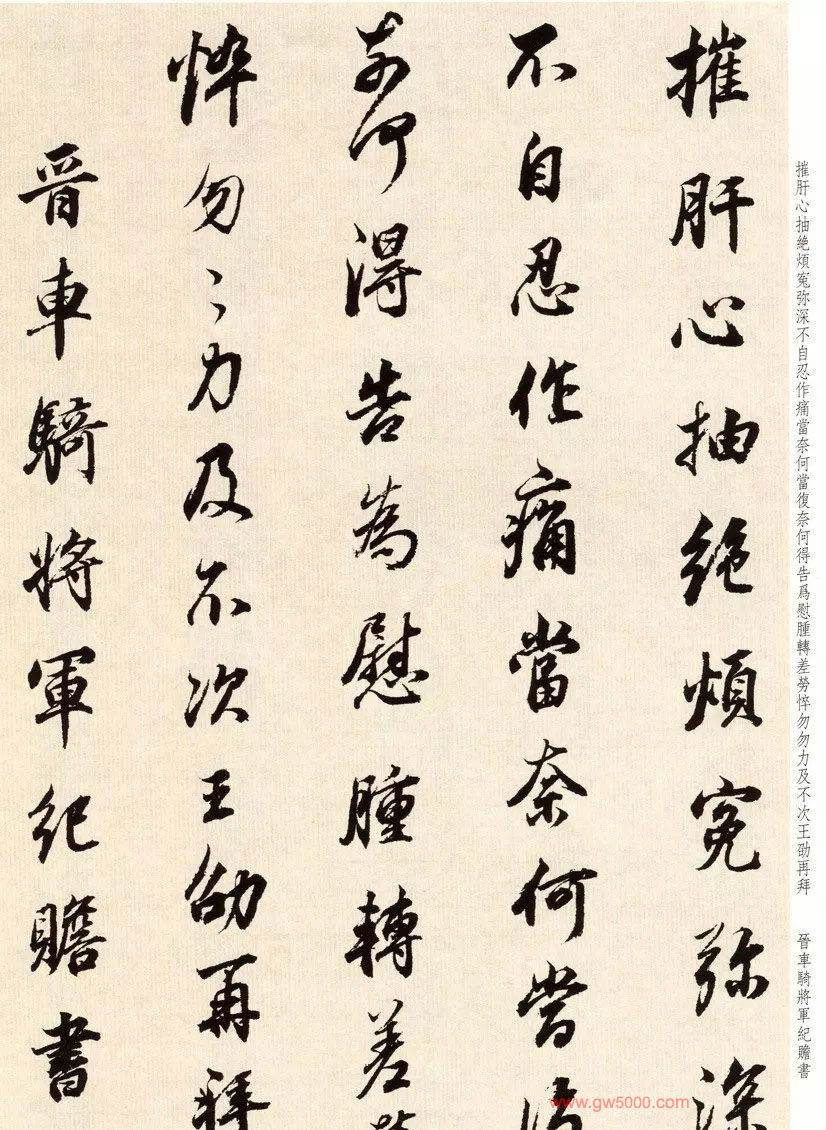 摧肝心抽絶煩冤弥深不自忍作痛當奈何當復奈何得告爲慰腫轉差勞悴勿勿力及不次王劭再拜　晉車騎將軍紀贍書
摧肝心抽絶煩冤弥深
不自忍作痛當奈何當復
奈何得告為慰腫轉差勞
悴勿〻力及不次王劭再拜
晉車騎將軍紀贍書
www.gw5000.com